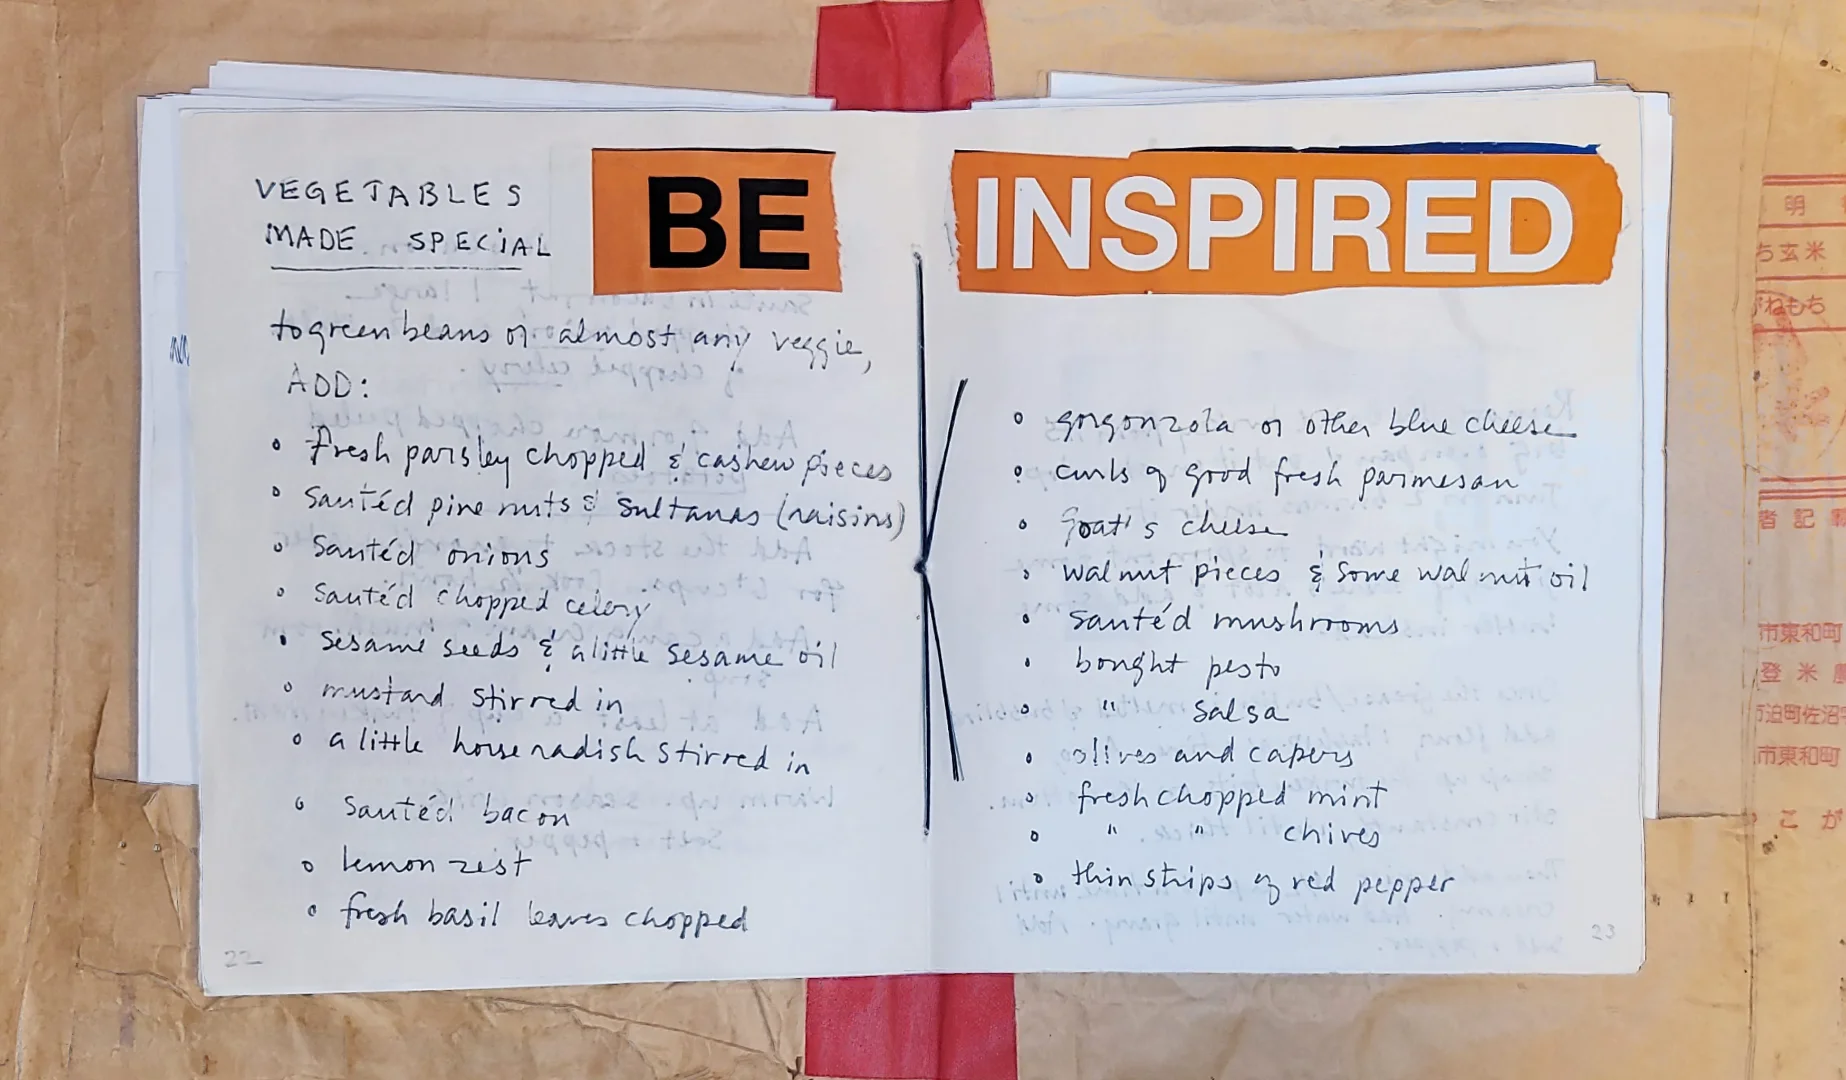 VEGETABLES
MADE SPECIAL
BE
to green beans or almost any veggie,
ADD:
• Fresh parsley chopped & cashew pieces
• Sautéd pine nuts & sultanas (raisins)
• Sautéd onions
• Sautéd chopped celery
• Sesame seeds & a little sesame oil
• mustard stirred in
• a little horseradish stirred in
• Sautéd bacon
• lemon zest
• fresh basil leaves chopped
22
INSPIRED
• gorgonzola or other blue cheese
• curls of good fresh parmesan
• goat's cheese
• walnut pieces & some walnut oil
• sautéd mushrooms
• bought pesto
• " salsa
• olives and capers
• fresh chopped mint
• " " chives
• thin strips of red pepper
23
明
ち玄米
がねもち
者記載
市東和町
登米
市迫町佐沼字
市東和町
こが